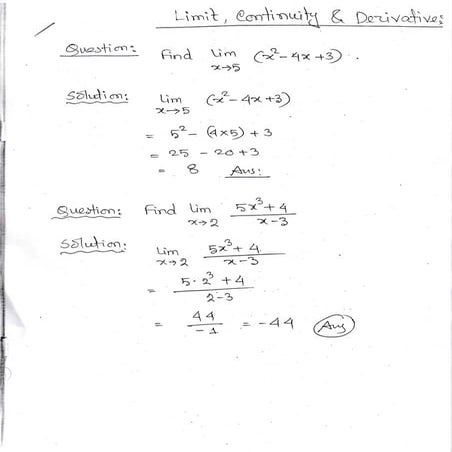 Limit, Continuity & Derivative:
Question: Find Lim x→5 (x²-4x+3).
Solution: Lim x→5 (x²-4x+3)
= 5² - (4×5) + 3
= 25 - 20 + 3
= 8 Ans:
Question: Find Lim x→2 5x³+4 / x-3
Solution: Lim x→2 5x³+4 / x-3
= 5·2³+4 / 2-3
= 44 / -1 = -44 Ans